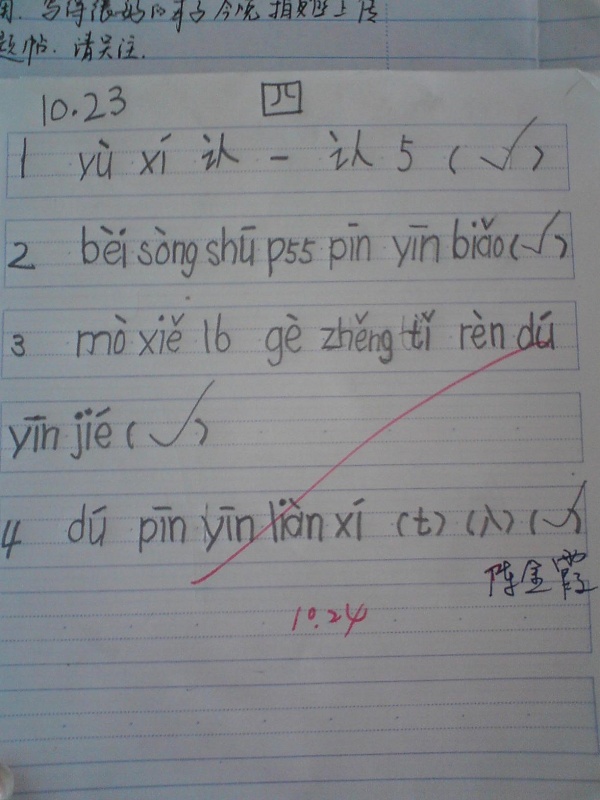 写得很好的才子今晚拍照上传
题帖.请关注.
10.23 四
1 yù xí 认一 认5(✓)
2 bèi sòng shū p55 pīn yīn biǎo(✓)
3 mò xiě 16 gè zhěng tǐ rèn dú
yīn jié(✓)
4 dú pīn yīn liàn xí (七)(八)(✓)
陈金霞
10.24